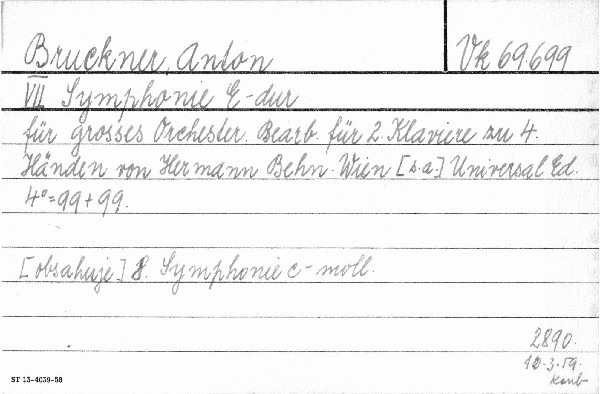 Bruckner, Anton
Vk 69.699
VII Symphonie E-dur
für grosses Orchester. Bearb. für 2 Klaviere zu 4.
Händen von Hermann Behn. Wien [s.a.] Universal Ed.
4°= 99 + 99.
[obsahuje] 8. Symphonie c-moll.
2890.
12.3.59.
ST 13-4039-58